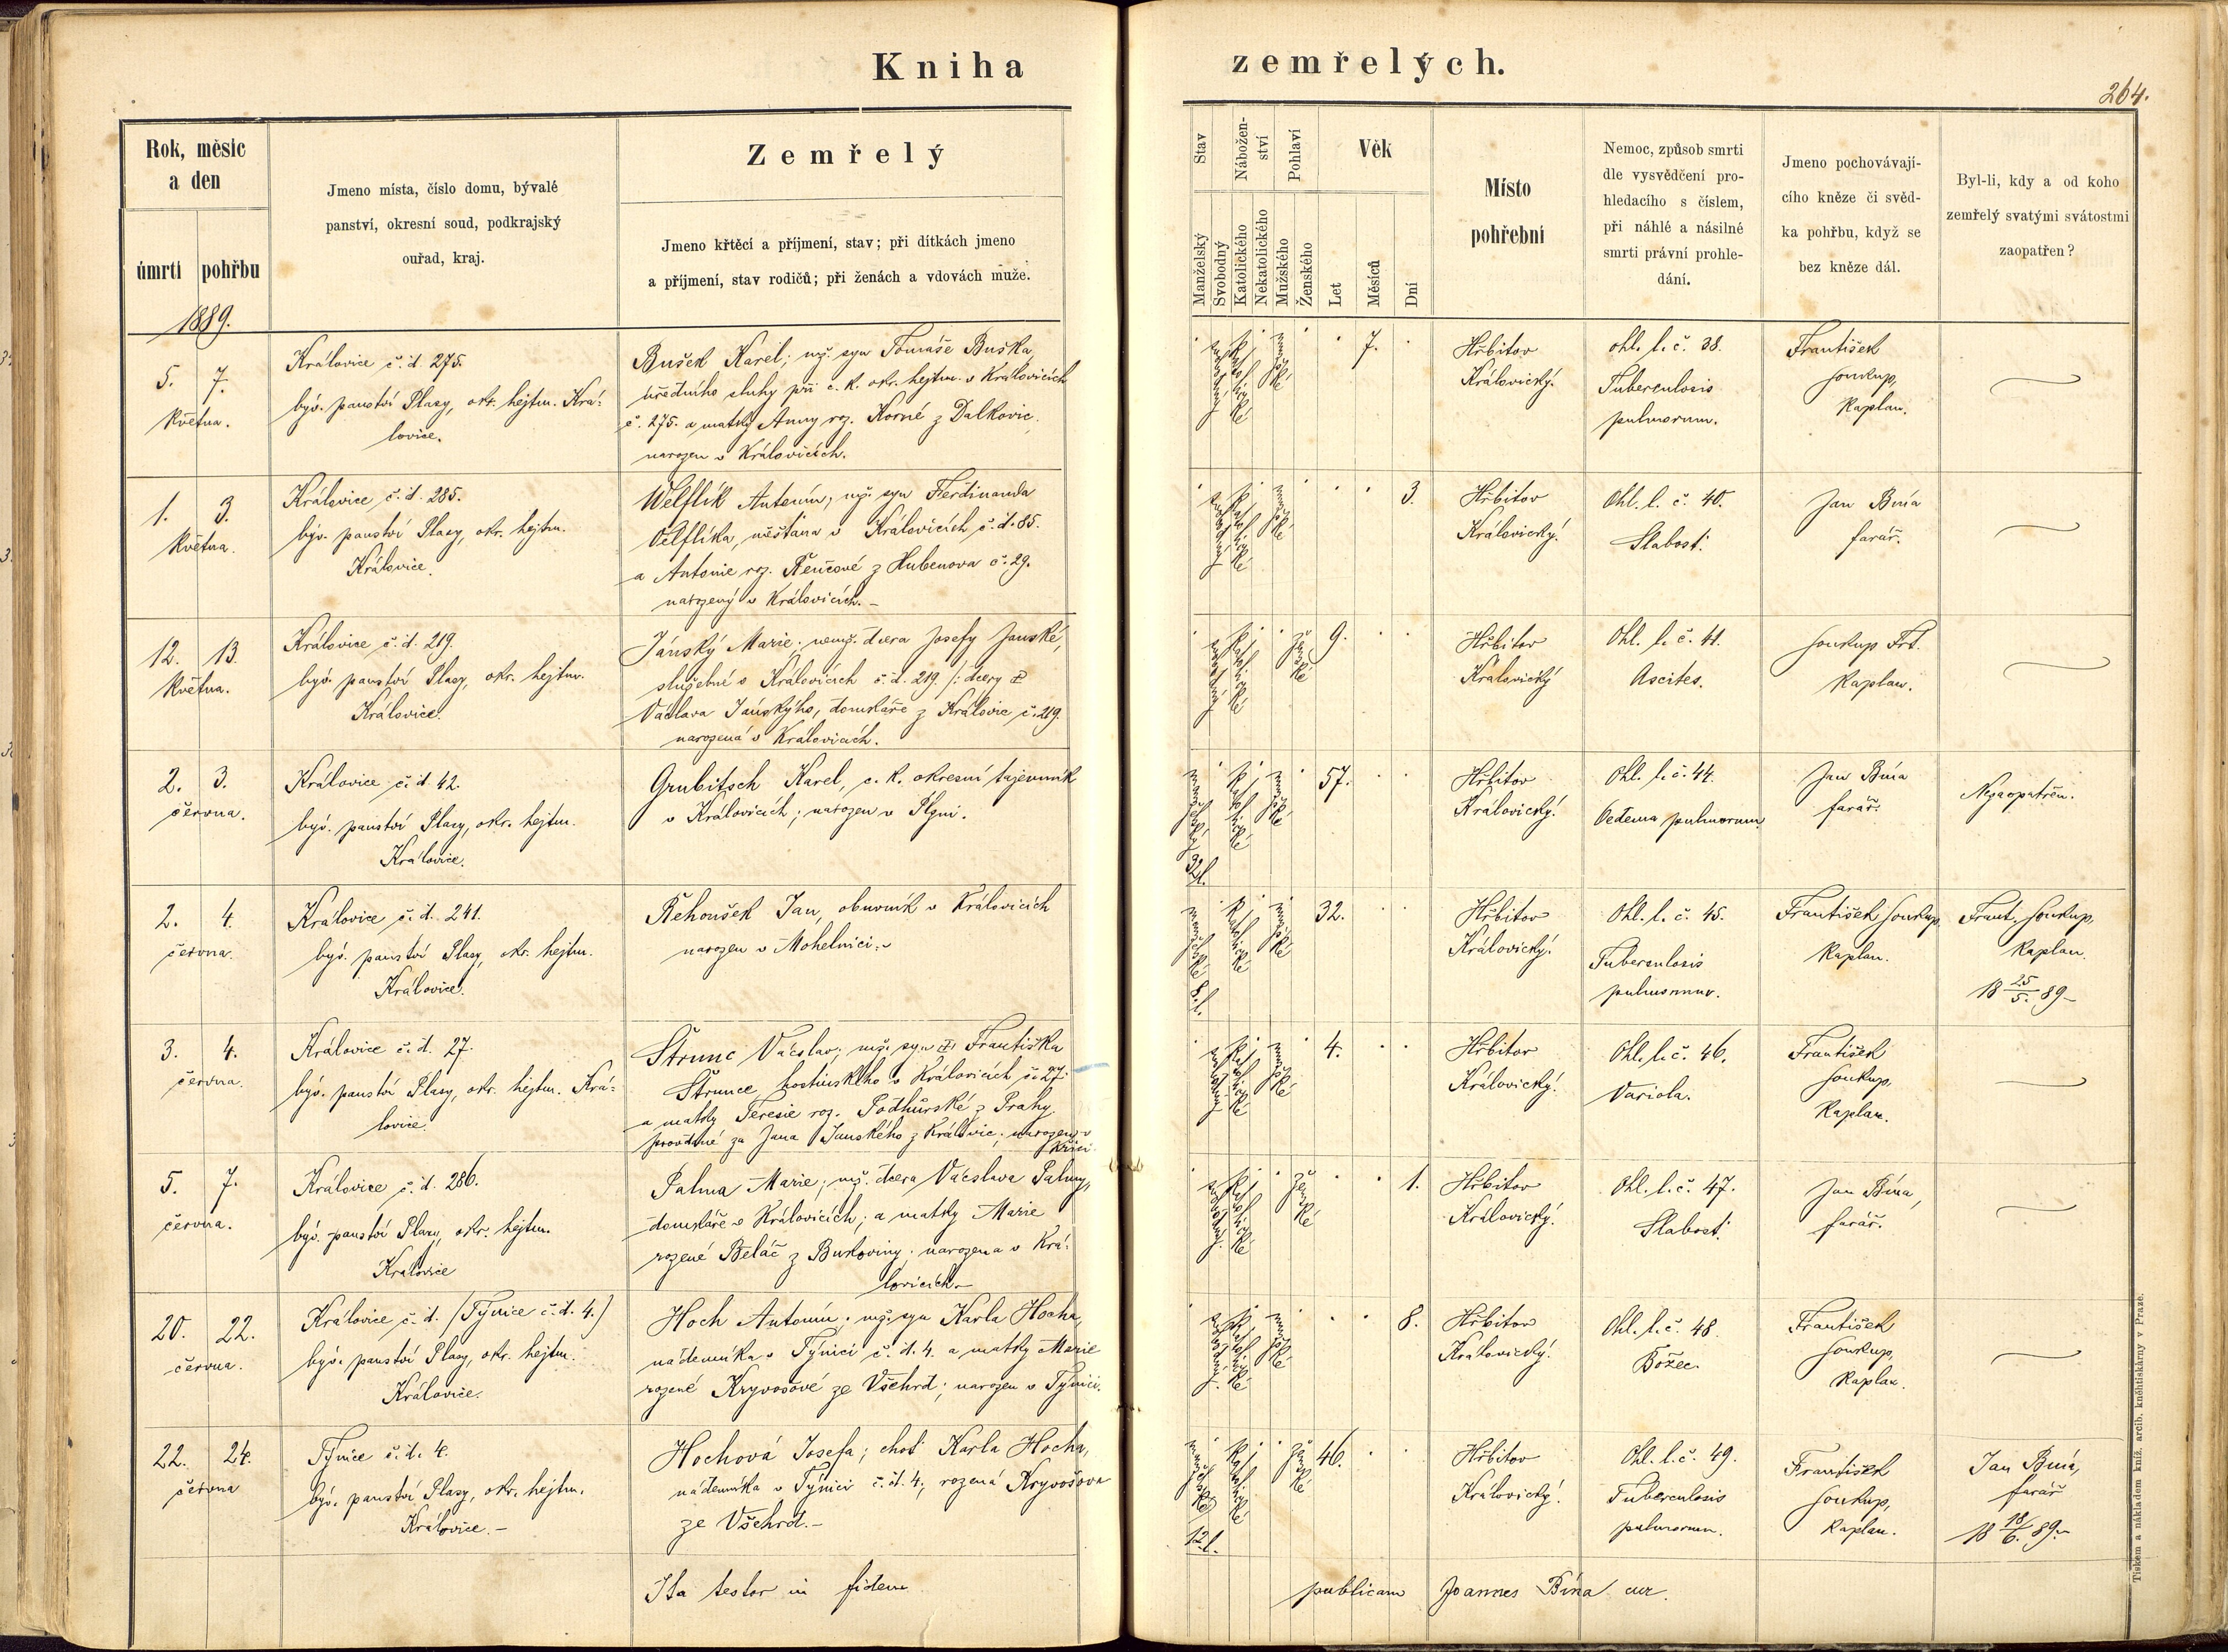 Kniha zemřelých.
264.
Rok, měsíc
a den
úmrtí
pohřbu
1889.
Jmeno místa, číslo domu, bývalé
panství, okresní soud, podkrajský
ouřad, kraj.
Zemřelý
Jmeno křtěcí a příjmení, stav; při dítkách jmeno
a příjmení, stav rodičů; při ženách a vdovách muže.
Stav
Manželský
Svobodný
Nábožen-
ství
Katolického
Nekatolického
Pohlaví
Mužského
Ženského
Věk
Let
Měsíců
Dní
Místo
pohřební
Nemoc, způsob smrti
dle vysvědčení pro-
hledacího s číslem,
při náhlé a násilné
smrti právní prohle-
dání.
Jmeno pochovávají-
cího kněze či svěd-
ka pohřbu, když se
bez kněze dál.
Byl-li, kdy a od koho
zemřelý svatými svátostmi
zaopatřen?
5. 7.
května.
Královice č. d. 275.
býv. panství Plasy, okr. hejtm. Krá-
lovice.
Bušek Karel; mž. syn Tomáše Buška,
úředního sluhy při c. k. okr. hejtm. v Královicích
č. 275. a matky Anny roz. Korné z Dalkovic.
narozen v Královicích.
svobodný
katolické
mužské
7.
Hřbitov
Královický.
ohl. l. č. 38.
Tuberculosis
pulmorum.
František
Soukup,
kaplan.
1. 3.
května.
Královice č. d. 285.
býv. panství Plasy, okr. hejtm.
Královice.
Welflík Antonín; mž. syn Ferdinanda
Velflíka, měštana v Královicích č. d. 85.
a Antonie roz. Řenčové z Hubenova č. 29.
narozený v Královicích.-
svobodný
katolické
mužské
3.
Hřbitov
Královický.
Ohl. l. č. 40.
Slabost.
Jan Bína
farář.
12. 13.
května.
Královice č. d. 219.
býv. panství Plasy, okr. hejtm.
Královice.
Jánský Marie; nemž. dcera Josefy Janské,
služebné v Královicích č. d. 219. /: dcery
Václava Jánskýho, domkáře z Královic č. 219.
narozená v Královicích.
svobodný
katolické
ženské
9.
Hřbitov
Královický
Ohl. l. č. 41.
Ascites.
Soukup Frt.
kaplan.
2. 3.
června.
Královice č. d. 42.
býv. panství Plasy, okr. hejtm.
Královice.
Grubitsch Karel, c. k. okresní tajemník
v Královicích; narozen v Plzni.
katolické
mužské
57.
Hřbitov
Královický.
Ohl. l. č. 44.
Oedema pulmorum.
Jan Bína
farář.
Nezaopatřen.
2. 4.
června.
Královice č. d. 241.
býv. panství Plasy, okr. hejtm.
Královice.
Řehoušek Jan, obuvník v Královicích
narozen v Mohelnici.-
8. l.
katolické
mužské
32.
Hřbitov
Královický.
Ohl. l. č. 45.
Tuberculosis
pulmorum.
František Soukup,
kaplan.
Frant. Soukup,
kaplan.
18 25/5. 89-
3. 4.
června.
Královice č. d. 27.
býv. panství Plasy, okr. hejtm. Krá-
lovice.
Štrunc Václav; mž. syn Františka
Štrunce hostinského v Královicích č. 27.
a matky Teresie roz. Podhůrské z Prahy
provdané za Jana Janského z Královic; narozen v
svobodný
katolické
mužské
4.
Hřbitov
Královický.
Ohl. l. č. 46.
Variola.
František
Soukup,
kaplan.
5. 7.
června.
Královice č. d. 286.
býv. panství Plasy, okr. hejtm.
Královice
Palma Marie; mž. dcera Václava Palmy,
domkáře v Královicích; a matky Marie
rozené Běláč z Bukoviny. narozena v Krá-
lovicích.-
svobodný
katolické
ženské
1.
Hřbitov
Královický.
Ohl. l. č. 47.
Slabost.
Jan Bína,
farář.
20. 22.
června.
Královice č. d. (Týnice č. d. 4.)
býv. panství Plasy, okr. hejtm.
Královice.
Hoch Antonín; mž. syn Karla Hocha,
nádenníka v Týnici č. d. 4. a matky Marie
rozené Kryvošové ze Všehrd; narozen v Týnici.
svobodný
katolické
mužské
8.
Hřbitov
Královický.
Ohl. l. č. 48.
Božec.
František
Soukup,
kaplan.
22. 24.
června
Týnice č. d. 4.
býv. panství Plasy, okr. hejtm.
Královice.-
Hochová Josefa; choť Karla Hocha,
nádenníka v Týnici č. d. 4; rozená Kryvošova
ze Všehrd.-
12. l.
katolické
ženské
46.
Hřbitov
Královický.
Ohl. l. č. 49.
Tuberculosis
pulmorum.
František
Soukup,
kaplan.
Jan Bína,
farář
18 18/6. 89.-
Ita testor in fidem publicam Joannes Bína cur.
Tiskem a nákladem kníž. arcib. kněhtiskárny v Praze.